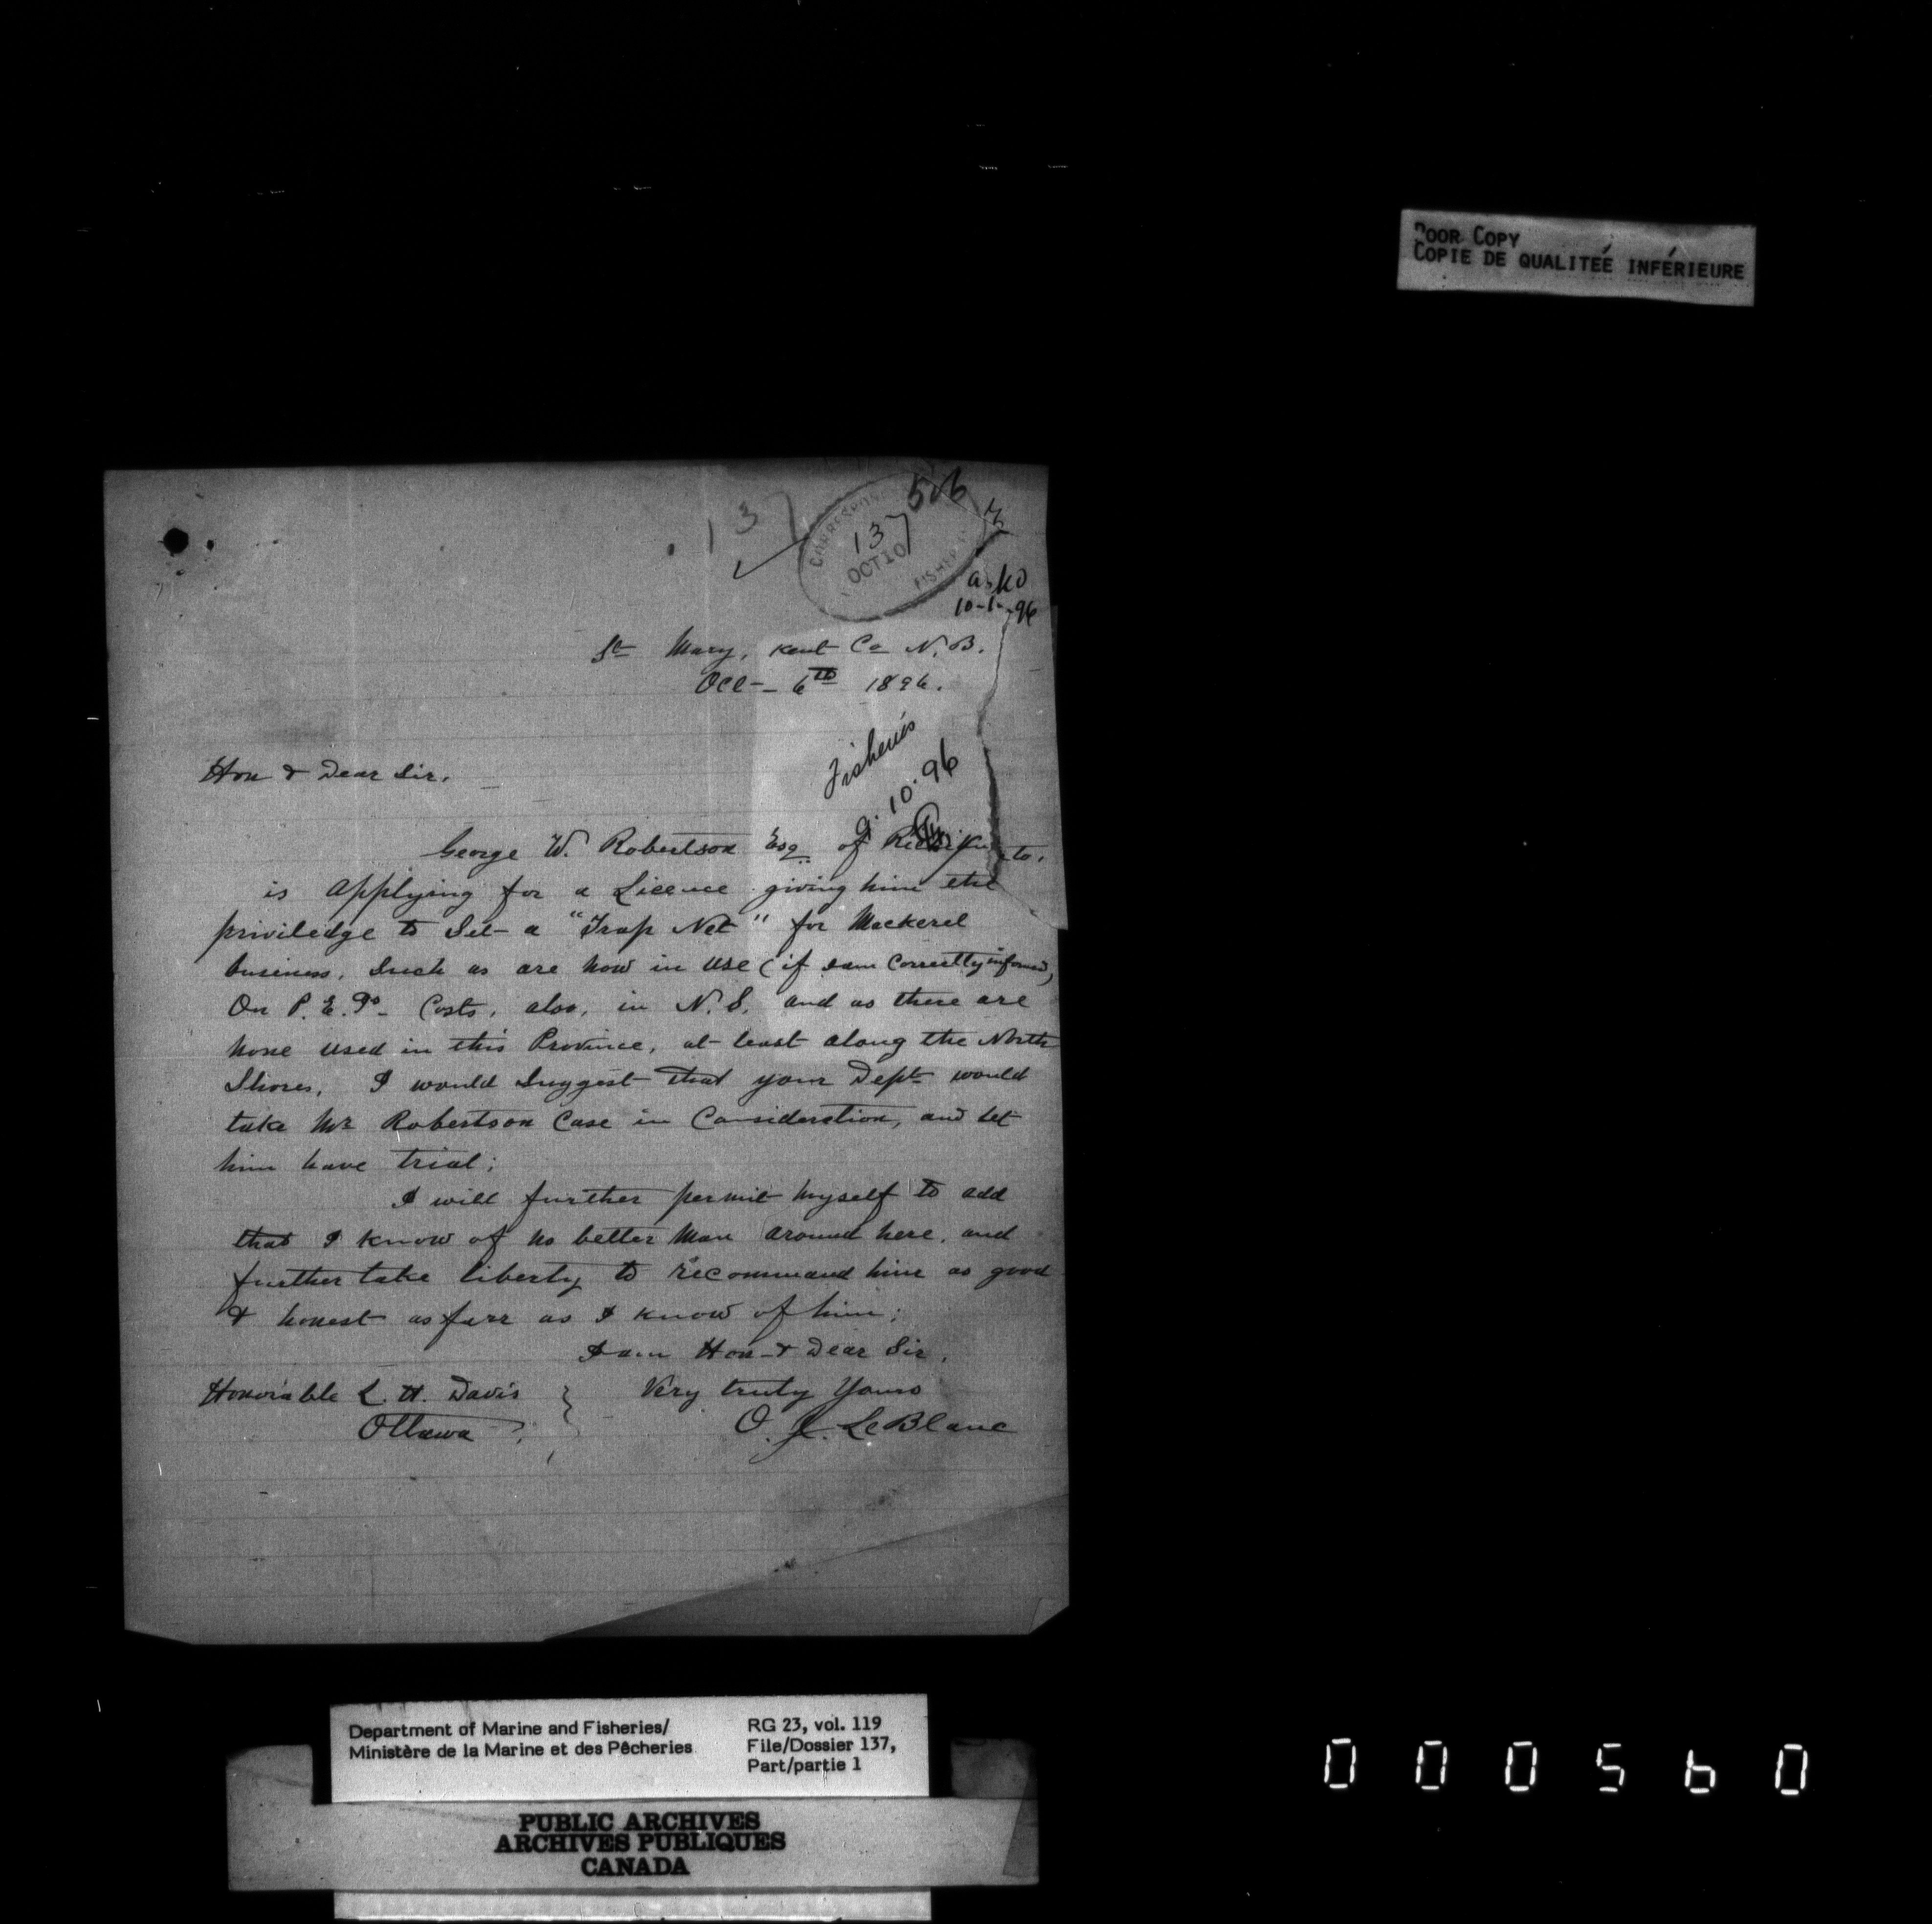 POOR COPY
COPIE DE QUALITEÉ INFÉRIEURE
137
506
137
OCT 10
10-96
St Mary, Kent Co N.B.
Oct- 6th 1896.
Fisheries
9.10.96
Hon & Dear Sir.
George W. Robertson Esq of Richibucto.
is applying for a Licence giving him the
priviledge to Set a "Trap Net" for Mackerel
business, Such as are now in use (if I am Correctly informed)
On P.E.Is. Costs, also, in N.S. and as there are
none used in this Province, at least along the North
Shores, I would Suggest that your Dept would
take Mr Robertson Case in Consideration, and let
him have trial;
I will further permit myself to add
that I know of no better Man around here, and
further take liberty to recommand him as good
& honest as farr as I know of him;
I am Hon & Dear Sir,
Honorable L. H. Davis
Very truly Yours
Ottawa
O. J. LeBlanc
Department of Marine and Fisheries/
Ministère de la Marine et des Pêcheries
RG 23, vol. 119
File/Dossier 137,
Part/partie 1
PUBLIC ARCHIVES
ARCHIVES PUBLIQUES
CANADA
000560